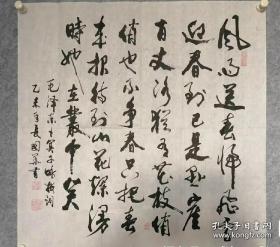 风雨送春归飞
雪迎春到已是悬崖
百丈冰犹有花枝俏
俏也不争春只把春
来报待到山花烂漫
时她在丛中笑
毛泽东卜算子咏梅词
乙未年 国 书